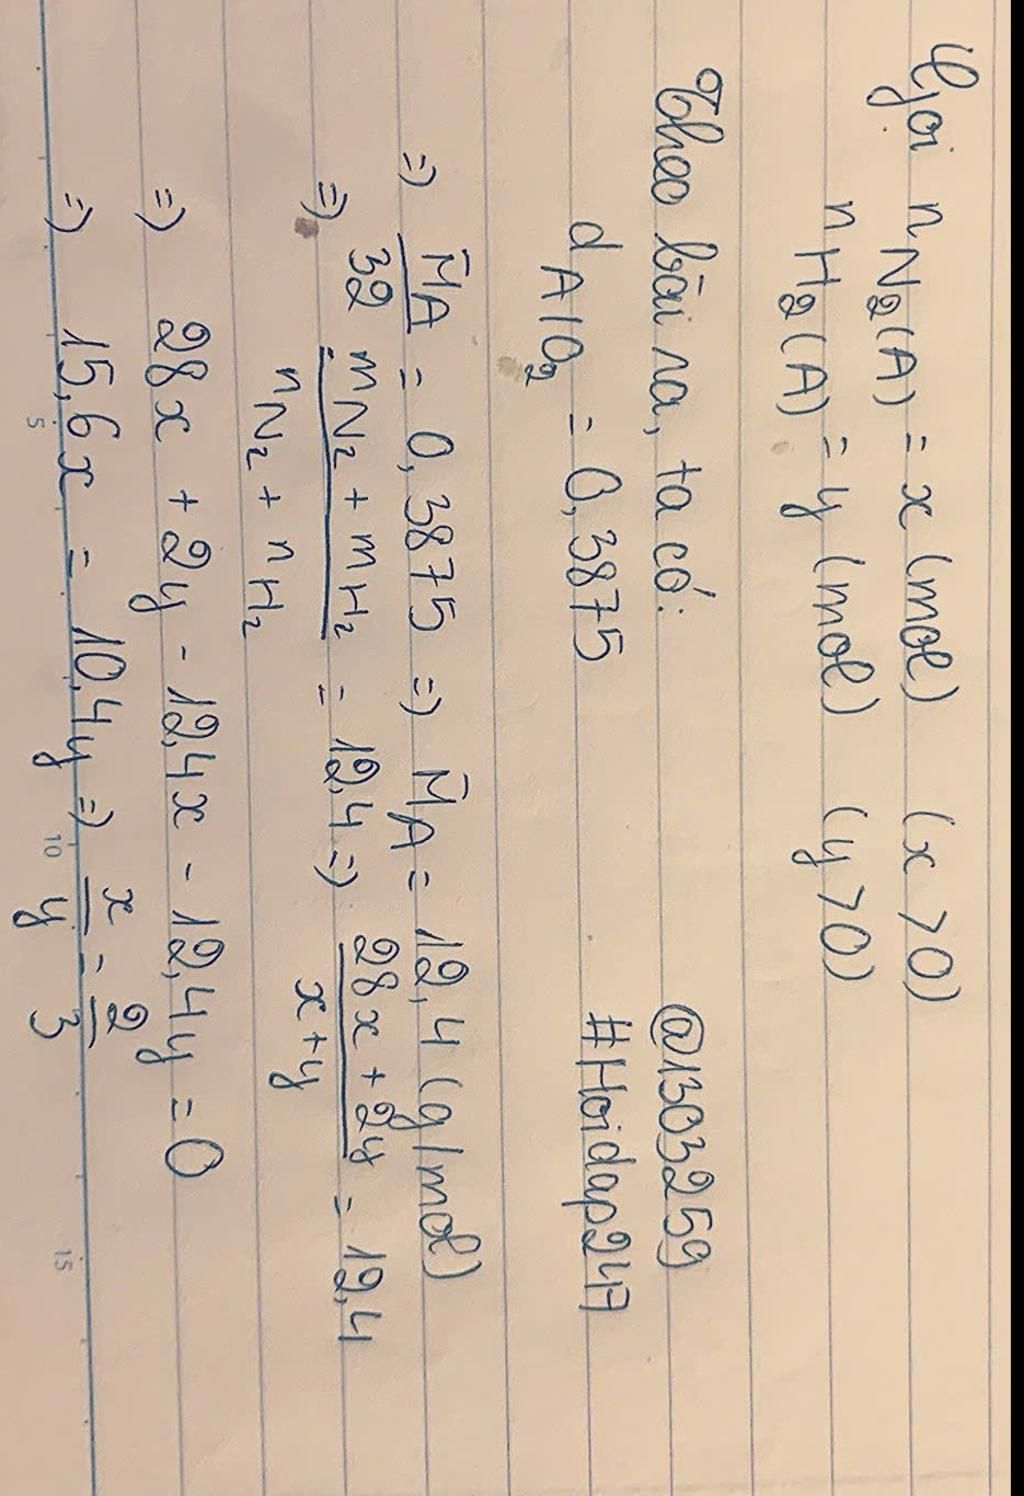 Gọi nN2(A) = x (mol) (x > 0)
nH2(A) = y (mol) (y > 0)
Theo bài ra, ta có: @1303259
dA/O2 = 0,3875 #Hoidap247
=) M̄A/32 = 0,3875 =) M̄A = 12,4 (g/mol)
=) (mN2 + mH2)/(nN2 + nH2) = 12,4 =) (28x + 2y)/(x+y) = 12,4
=) 28x + 2y - 12,4x - 12,4y = 0
=) 15,6x = 10,4y =) x/y = 2/3
5 10 15